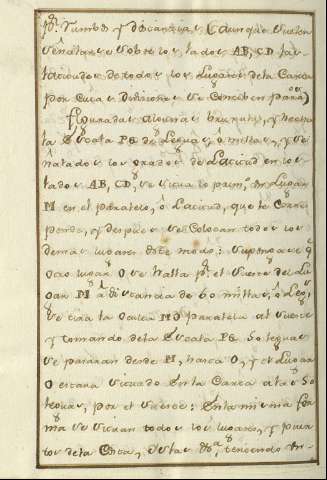 pr. Rumbos y distancias, (aunque suelen
señalarse sobre los lados AB, CD las
latitudes de todos los lugares de la Carta
por cuyas Divisiones se conciben paralos)
figuradas algunas brujulas, y hecha
la Escala PG de leguas, ó millas, y se-
ñalados los grados de Latitud en los
lados AB, CD, se situa lo primo. un lugar
M en el paralelo, ó Latitud, que le Corres
ponda, y despues se Colocan todos los
demas lugares deste modo: supongase q
otro lugar O se halla pr. el Sueste del Lu
gar M á distancia de 60 millas, ó Legs.
se tira la oculta MO paralela al Sueste
y tomando de la Escala PG 50 leguas
se pasaran desde M, hasta O, y el Lugar
O estara situado en la Carta a las 50
leguas, por el Sueste: En la misma for
ma se situan todos los lugares, y pun
tos de la Costa, Islas &a. teniendo en-